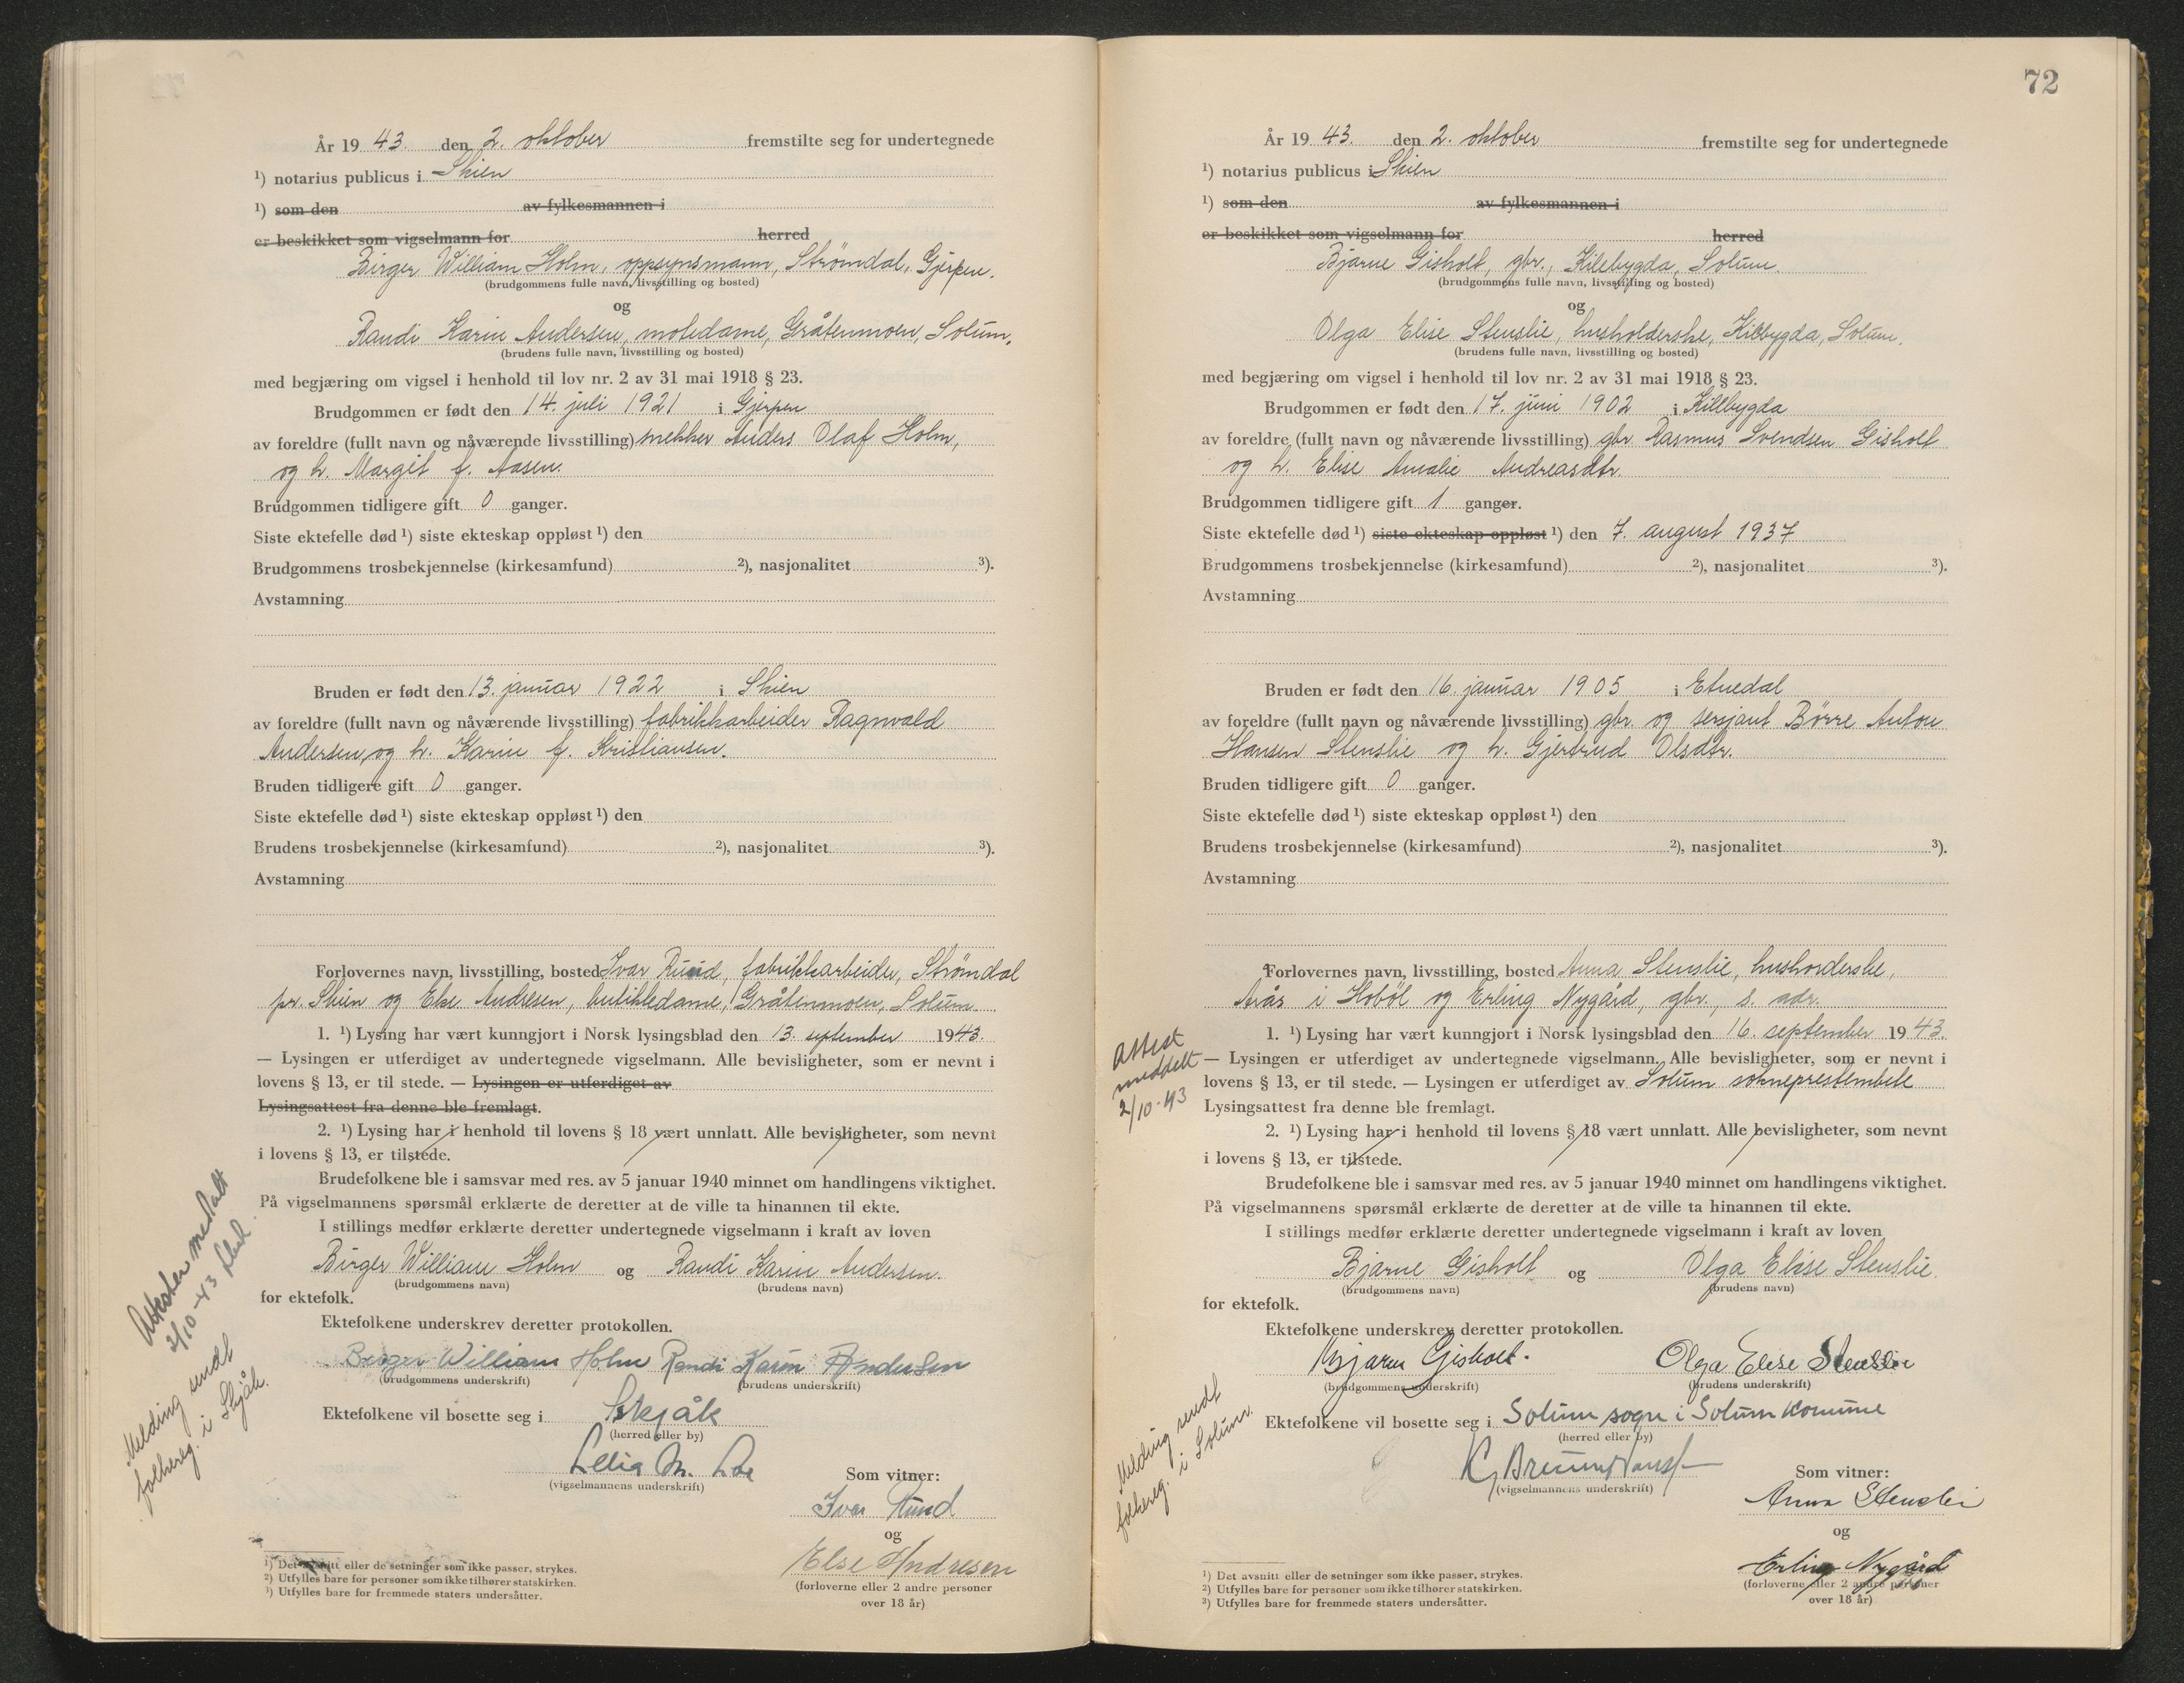 År 19 43. den 2. oktober fremstilte seg for undertegnede
¹) notarius publicus i Skien
¹) som den av fylkesmannen i
er beskikket som vigselmann for herred
Birger William Holm, oppsynsmann, Strömdal, Gjerpen.
(brudgommens fulle navn, livsstilling og bosted)
og
Randi Karin Andersen, motedame, Gråtenmoen, Solum.
(brudens fulle navn, livsstilling og bosted)
med begjæring om vigsel i henhold til lov nr. 2 av 31 mai 1918 § 23.
Brudgommen er født den 14. juli 1921 i Gjerpen
av foreldre (fullt navn og nåværende livsstilling) mekker Anders Olaf Holm,
og h. Margit f. Aasen.
Brudgommen tidligere gift 0 ganger.
Siste ektefelle død ¹) siste ekteskap oppløst ¹) den
Brudgommens trosbekjennelse (kirkesamfund) ²), nasjonalitet ³).
Avstamning
Bruden er født den 13. januar 1922 i Skien
av foreldre (fullt navn og nåværende livsstilling) fabrikkarbeider Ragnvald
Andersen, og h. Karin f. Kristiansen.
Bruden tidligere gift 0 ganger.
Siste ektefelle død ¹) siste ekteskap oppløst ¹) den
Brudens trosbekjennelse (kirkesamfund) ²), nasjonalitet ³).
Avstamning
Forlovernes navn, livsstilling, bosted Ivar Ruud, fabrikkarbeider, Strömdal
pr. Skien og Else Andresen, butikkdame, Gråtenmoen, Solum.
1. ¹) Lysing har vært kunngjort i Norsk lysingsblad den 13. september 1943.
— Lysingen er utferdiget av undertegnede vigselmann. Alle bevisligheter, som er nevnt i
lovens § 13, er til stede. — Lysingen er utferdiget av
Lysingsattest fra denne ble fremlagt.
2. ¹) Lysing har i henhold til lovens § 18 vært unnlatt. Alle bevisligheter, som nevnt
i lovens § 13, er tilstede.
Brudefolkene ble i samsvar med res. av 5 januar 1940 minnet om handlingens viktighet.
På vigselmannens spørsmål erklærte de deretter at de ville ta hinannen til ekte.
I stillings medfør erklærte deretter undertegnede vigselmann i kraft av loven
Birger William Holm og Randi Karin Andersen.
(brudgommens navn) (brudens navn)
for ektefolk.
Ektefolkene underskrev deretter protokollen.
Birger William Holm Randi Karin Andersen
(brudgommens underskrift) (brudens underskrift)
Ektefolkene vil bosette seg i Skjåk
(herred eller by)
(vigselmannens underskrift)
Som vitner:
Ivar Ruud
og
Else Andresen
(forloverne eller 2 andre personer
over 18 år)
Attester meddelt
2/10-43
Melding sendt
folkereg. i Skjåk.
¹) Det avsnitt eller de setninger som ikke passer, strykes.
²) Utfylles bare for personer som ikke tilhører statskirken.
³) Utfylles bare for fremmede staters undersåtter.
72
År 19 43. den 2. oktober fremstilte seg for undertegnede
¹) notarius publicus i Skien
¹) som den av fylkesmannen i
er beskikket som vigselmann for herred
Bjarne Gisholt, gbr., Kilebygda, Solum.
(brudgommens fulle navn, livsstilling og bosted)
og
Olga Elise Stenslie, husholderske, Kilebygda, Solum.
(brudens fulle navn, livsstilling og bosted)
med begjæring om vigsel i henhold til lov nr. 2 av 31 mai 1918 § 23.
Brudgommen er født den 17. juni 1902 i Killbygda
av foreldre (fullt navn og nåværende livsstilling) gbr. Rasmus Svendsen Gisholt
og h. Elise Amalie Andreasdtr.
Brudgommen tidligere gift 1 ganger.
Siste ektefelle død ¹) siste ekteskap oppløst ¹) den 7. august 1937
Brudgommens trosbekjennelse (kirkesamfund) ²), nasjonalitet ³).
Avstamning
Bruden er født den 16. januar 1905 i Etnedal
av foreldre (fullt navn og nåværende livsstilling) gbr. og sersjant Börre Anton
Hansen Stenslie og h. Gjertrud Olsdtr.
Bruden tidligere gift 0 ganger.
Siste ektefelle død ¹) siste ekteskap oppløst ¹) den
Brudens trosbekjennelse (kirkesamfund) ²), nasjonalitet ³).
Avstamning
Forlovernes navn, livsstilling, bosted Anna Stenslie, hushorderske,
Arås i Hoböl og Erling Nygård, gbr., s. adr.
1. ¹) Lysing har vært kunngjort i Norsk lysingsblad den 16. september 1943.
— Lysingen er utferdiget av undertegnede vigselmann. Alle bevisligheter, som er nevnt i
lovens § 13, er til stede. — Lysingen er utferdiget av Solum sokneprestembete
Lysingsattest fra denne ble fremlagt.
2. ¹) Lysing har i henhold til lovens § 18 vært unnlatt. Alle bevisligheter, som nevnt
i lovens § 13, er tilstede.
Brudefolkene ble i samsvar med res. av 5 januar 1940 minnet om handlingens viktighet.
På vigselmannens spørsmål erklærte de deretter at de ville ta hinannen til ekte.
I stillings medfør erklærte deretter undertegnede vigselmann i kraft av loven
Bjarne Gisholt og Olga Elise Stenslie.
(brudgommens navn) (brudens navn)
for ektefolk.
Ektefolkene underskrev deretter protokollen.
Bjarne Gisholt. Olga Elise Stenslie
(brudgommens underskrift) (brudens underskrift)
Ektefolkene vil bosette seg i Solum sogn i Solum komune
(herred eller by)
(vigselmannens underskrift)
Som vitner:
Anna Stenslie
og
Erling Nygård
(forloverne eller 2 andre personer
over 18 år)
Attest
meddelt
2/10-43
Melding sendt
folkereg. i Solum.
¹) Det avsnitt eller de setninger som ikke passer, strykes.
²) Utfylles bare for personer som ikke tilhører statskirken.
³) Utfylles bare for fremmede staters undersåtter.